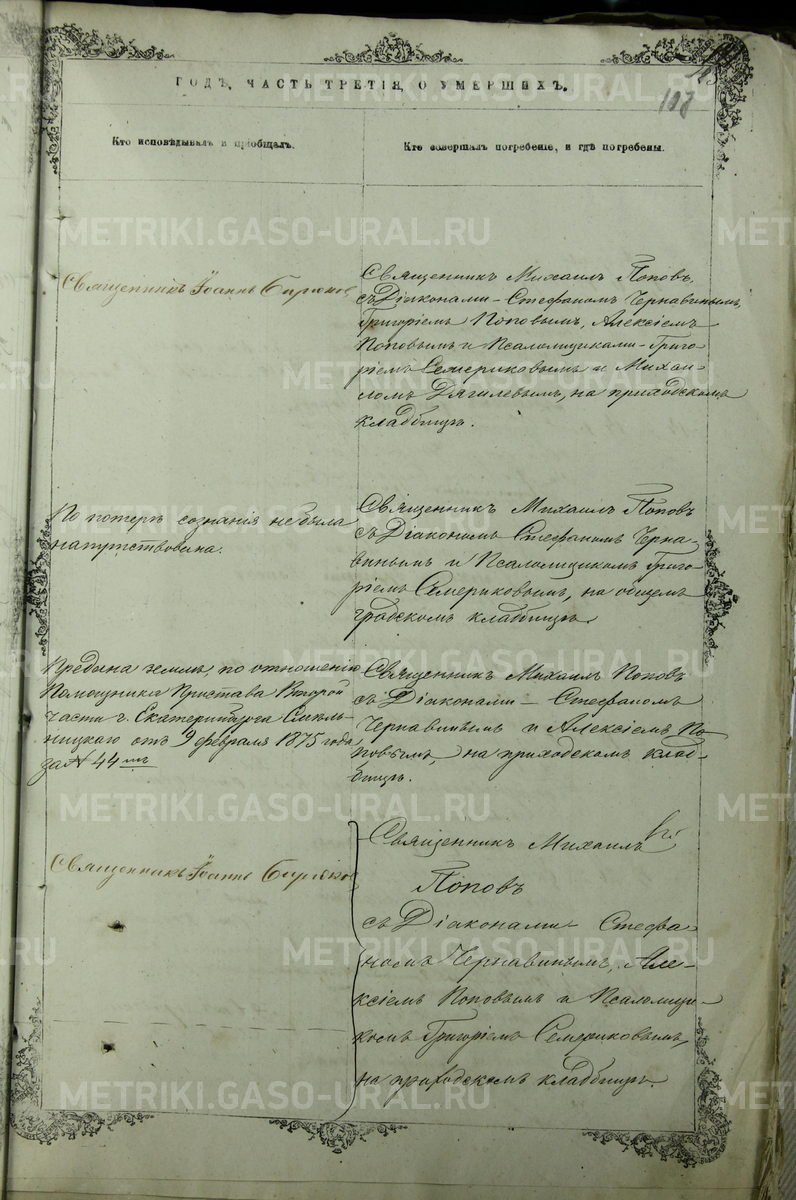 ГОДЪ, ЧАСТЬ ТРЕТІЯ, О УМЕРШИХЪ.
108
Кто исповѣдывалъ и пріобщалъ.
Кто совершалъ погребеніе, и гдѣ погребены.
Священникъ Іоаннъ Бирюков
Священникъ Михаилъ Поповъ,
съ Діаконами – Стефаномъ Чернавинымъ,
Григоріемъ Поповымъ, Алексіемъ
Поповымъ и Псаломщиками – Григо-
ріемъ Семериковымъ и Михаи-
ломъ Дягилевымъ, на приходскомъ
кладбищѣ.
По потерѣ сознанія не была
напутствована.
Священникъ Михаилъ Поповъ
съ Діакономъ Стефаномъ Черна-
винымъ и Псаломщикомъ Григо-
ріемъ Семериковымъ, на общемъ
градскомъ кладбищѣ.
Предана землѣ, по отношенію
Помощника Пристава Второй
части г. Екатеринбурга Смѣль-
ницкаго отъ 9 февраля 1875 года
за № 44мъ
Священникъ Михаилъ Поповъ
съ Діаконами – Стефаномъ
Чернавинымъ и Алексіемъ По-
повымъ, на приходскомъ клад-
бищѣ.
Священникъ Іоаннъ Бирюков
Священникъ Михаилъ
Поповъ
съ Діаконами Стефа
номъ Чернавинымъ, Але-
ксіемъ Поповымъ и Псаломщи-
комъ Григоріемъ Семериковымъ,
на приходскомъ кладбищѣ.
METRIKI.GASO-URAL.RU